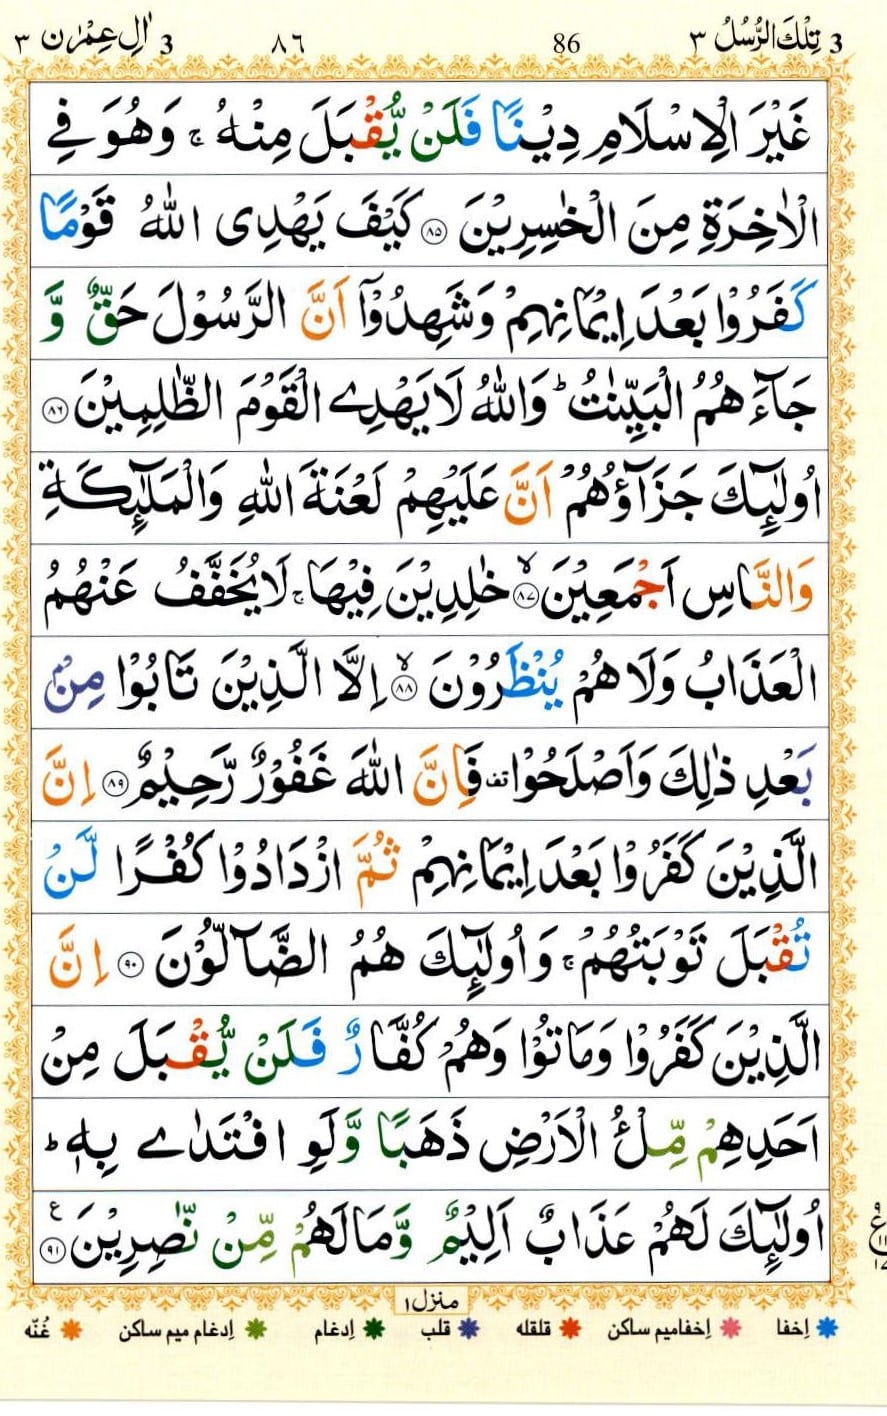 3 تِلْكَ الرُّسُلُ ٣ 86 ٨٦ 3 اٰلِ عِمْرٰن ٣
غَيْرَ الْاِسْلَامِ دِيْنًا فَلَنْ يُّقْبَلَ مِنْهُ ۚ وَهُوَ فِي
الْاٰخِرَةِ مِنَ الْخٰسِرِيْنَ ﴿٨٥﴾ كَيْفَ يَهْدِى اللّٰهُ قَوْمًا
كَفَرُوْا بَعْدَ اِيْمَانِهِمْ وَشَهِدُوْٓا اَنَّ الرَّسُوْلَ حَقٌّ وَّ
جَآءَهُمُ الْبَيِّنٰتُ ؕ وَاللّٰهُ لَا يَهْدِے الْقَوْمَ الظّٰلِمِيْنَ ﴿٨٦﴾
اُولٰٓئِكَ جَزَآؤُهُمْ اَنَّ عَلَيْهِمْ لَعْنَةَ اللّٰهِ وَالْمَلٰٓئِكَةِ
وَالنَّاسِ اَجْمَعِيْنَ ۙ﴿٨٧﴾ خٰلِدِيْنَ فِيْهَا ۚ لَا يُخَفَّفُ عَنْهُمُ
الْعَذَابُ وَلَا هُمْ يُنْظَرُوْنَ ۙ﴿٨٨﴾ اِلَّا الَّذِيْنَ تَابُوْا مِنْۢ
بَعْدِ ذٰلِكَ وَاَصْلَحُوْا قف فَاِنَّ اللّٰهَ غَفُوْرٌ رَّحِيْمٌ ﴿٨٩﴾ اِنَّ
الَّذِيْنَ كَفَرُوْا بَعْدَ اِيْمَانِهِمْ ثُمَّ ازْدَادُوْا كُفْرًا لَّنْ
تُقْبَلَ تَوْبَتُهُمْ ۚ وَاُولٰٓئِكَ هُمُ الضَّآلُّوْنَ ﴿٩٠﴾ اِنَّ
الَّذِيْنَ كَفَرُوْا وَمَاتُوْا وَهُمْ كُفَّارٌ فَلَنْ يُّقْبَلَ مِنْ
اَحَدِهِمْ مِّلْءُ الْاَرْضِ ذَهَبًا وَّلَوِ افْتَدٰے بِهٖ ؕ
اُولٰٓئِكَ لَهُمْ عَذَابٌ اَلِيْمٌ وَّمَا لَهُمْ مِّنْ نّٰصِرِيْنَ ۧ﴿٩١﴾
منزل ١
اِخفا اِخفامیم ساکن قلقله قلب اِدغام اِدغام میم ساکن غُنّه